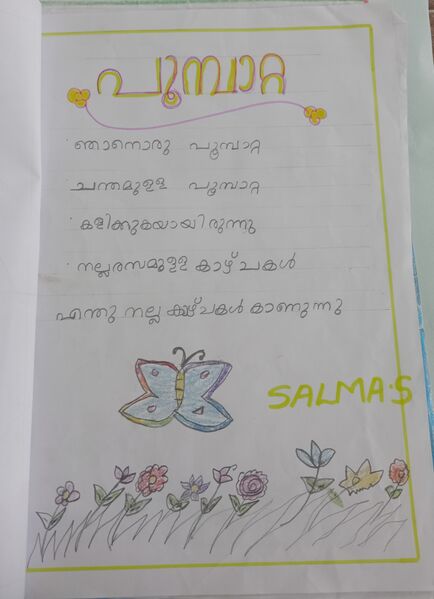 പൂമ്പാറ്റ
ഞാനൊരു പൂമ്പാറ്റ
ചന്തമുളള പൂമ്പാറ്റ
കളിക്കുകയായിരുന്നു
നല്ലരസമുളള കാഴ്ചകൾ
എന്തു നല്ല കാഴ്ചകൾ കാണുന്നു
SALMA.S